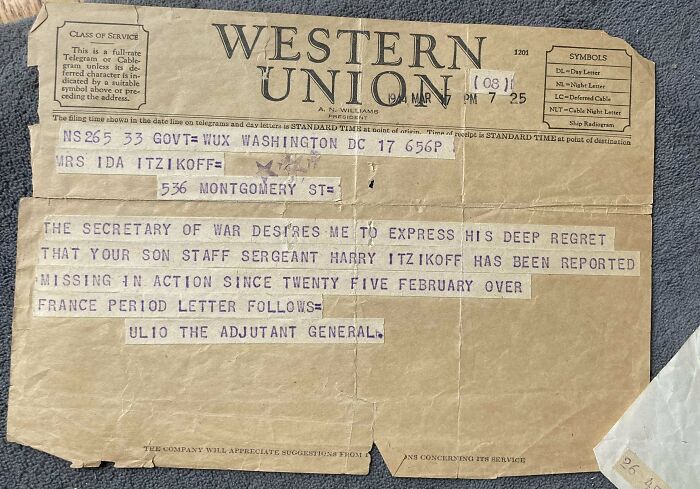 CLASS OF SERVICE
This is a full-rate
Telegram or Cable-
gram unless its de-
ferred character is in-
dicated by a suitable
symbol above or pre-
ceding the address.
WESTERN
UNION
A. N. WILLIAMS
PRESIDENT
1201
(08)
1944 MAR 17 PM 7 25
SYMBOLS
DL=Day Letter
NL=Night Letter
LC=Deferred Cable
NLT=Cable Night Letter
Ship Radiogram
The filing time shown in the date line on telegrams and day letters is STANDARD TIME at point of origin. Time of receipt is STANDARD TIME at point of destination
NS265 33 GOVT=WUX WASHINGTON DC 17 656P
MRS IDA ITZIKOFF=
536 MONTGOMERY ST=
THE SECRETARY OF WAR DESIRES ME TO EXPRESS HIS DEEP REGRET
THAT YOUR SON STAFF SERGEANT HARRY ITZIKOFF HAS BEEN REPORTED
MISSING IN ACTION SINCE TWENTY FIVE FEBRUARY OVER
FRANCE PERIOD LETTER FOLLOWS=
ULIO THE ADJUTANT GENERAL.
THE COMPANY WILL APPRECIATE SUGGESTIONS FROM ONS CONCERNING ITS SERVICE